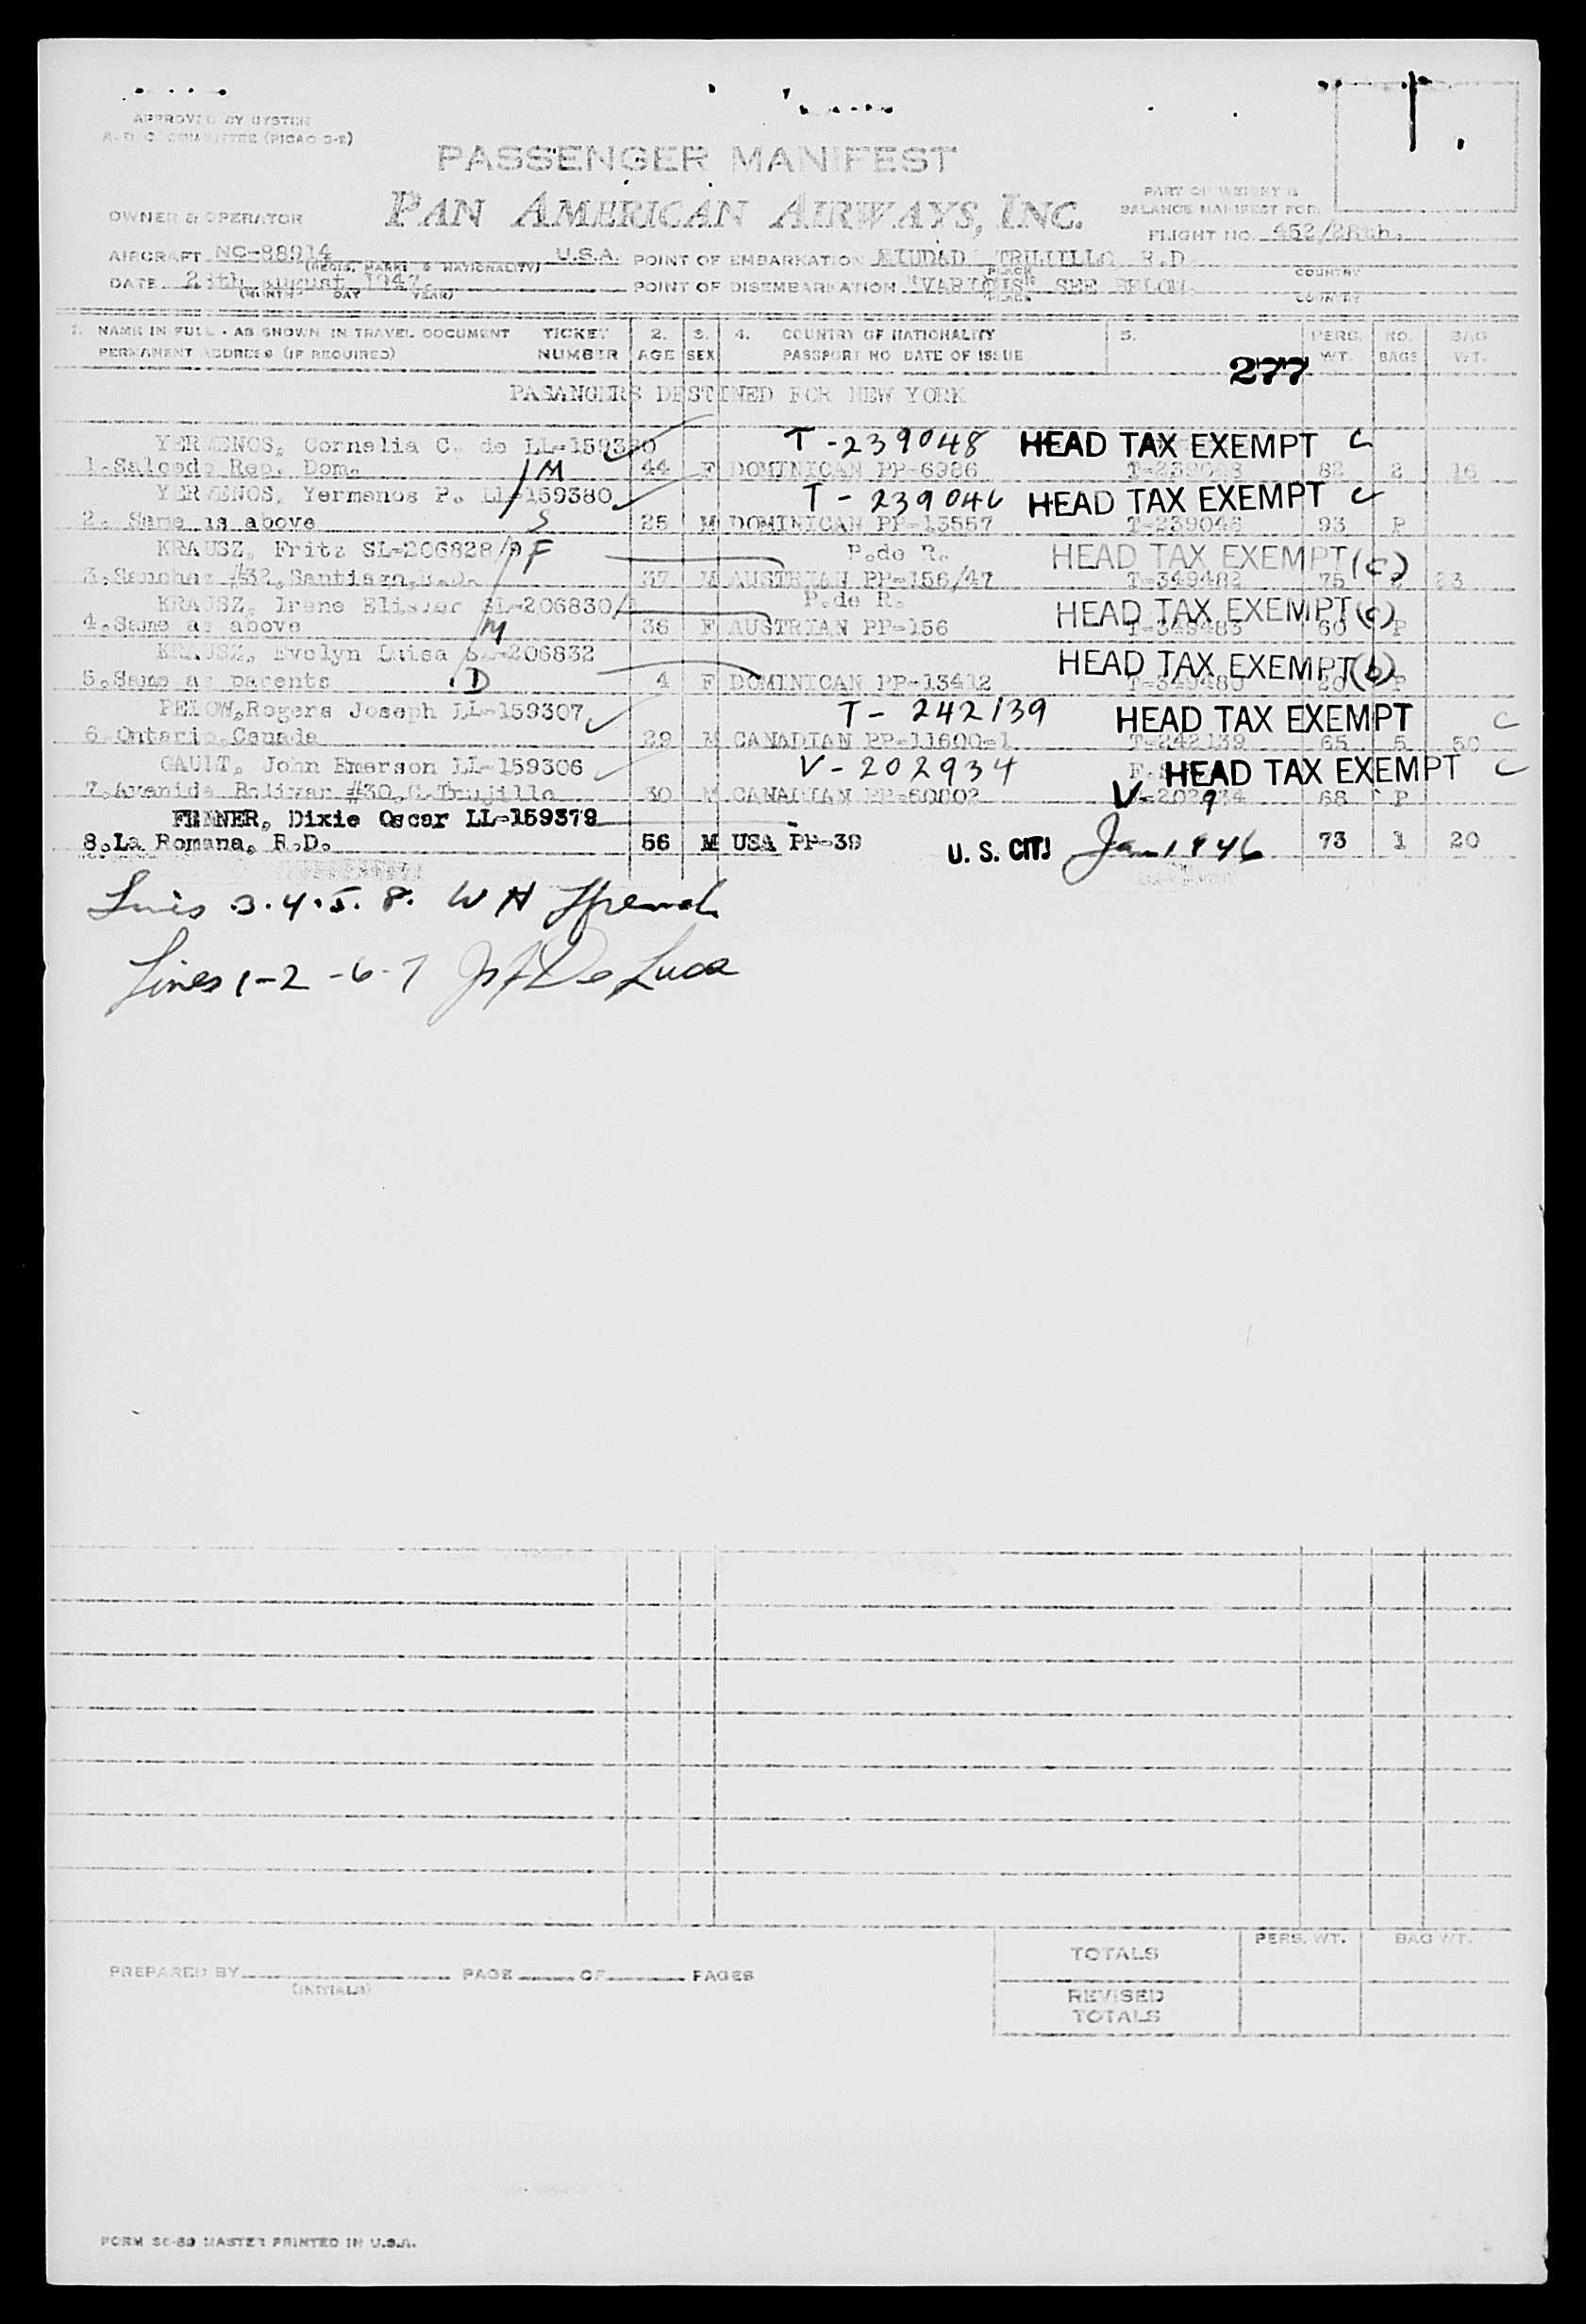 APPROVED BY SYSTEM
A. D. C. COMMITTEE (PICAO 3-2)
PASSENGER MANIFEST
PAN AMERICAN AIRWAYS, INC.
PART OF WEIGHT &
BALANCE MANIFEST FOR
OWNER & OPERATOR
FLIGHT NO. 452/28th.
AIRCRAFT NC-88914 U.S.A. POINT OF EMBARKATION TRUJILLO R.D.
(REGIS. MARKS & NATIONALITY) PLACE COUNTRY
DATE August 1947. POINT OF DISEMBARKATION "VARIOUS" SEE BELOW.
(MONTH DAY YEAR) PLACE COUNTRY
1. NAME IN FULL - AS SHOWN IN TRAVEL DOCUMENT TICKET 2. 3. 4. COUNTRY OF NATIONALITY 5. PERS. NO. BAG
PERMANENT ADDRESS (IF REQUIRED) NUMBER AGE SEX PASSPORT NO DATE OF ISSUE WT. BAGS WT.
277
PASANGERS DESTINED FOR NEW YORK
YERMENOS, Cornelia C. de LL-159380 T-239048 HEAD TAX EXEMPT C
1.Salcedo Rep. Dom. M 44 F DOMINICAN PP-6986 T-239048 82 2 16
YERMENOS, Yermenos P. LL-159380 T-239046 HEAD TAX EXEMPT C
2. Same as above S 25 M DOMINICAN PP-13557 T-239046 93 P
KRAUSZ, Fritz SL-206828/9 F P.de R. HEAD TAX EXEMPT (C)
3.Sanchez #32,Santiago,R.D. 37 M AUSTRIAN PP-156/47 T-349482 75 23
KRAUSZ, Irene SL-206830/1 P.de R. HEAD TAX EXEMPT (C)
4.Same as above M 36 F AUSTRIAN PP-156 T-349483 60 P
KRAUSZ, Evelyn Luisa SL-206832 HEAD TAX EXEMPT (b)
5.Same as parents D 4 F DOMINICAN PP-13412 T-349480 20 P
PELOW,Rogers Joseph LL-159307 T-242139 HEAD TAX EXEMPT C
6.Ontario,Canada 29 M CANADIAN PP-11600-1 T-242139 65 5 50
GAULT, John Emerson LL-159306 V-202934 HEAD TAX EXEMPT C
7.Avenida Bolivar #30,C.Trujillo 30 M CANADIAN PP-60802 V-202934 9 68 P
FENNER, Dixie Oscar LL-159379
8.La Romana, R.D. 56 M USA PP-39 U. S. CIT. Jan 1946 73 1 20
Lines 3.4.5.8. W H French
Lines 1-2-6-7 De Luca
PERS. WT. BAG WT.
TOTALS
PREPARED BY PAGE OF PAGES
(INITIALS)
REVISED
TOTALS
FORM SC-89 MASTER PRINTED IN U.S.A.